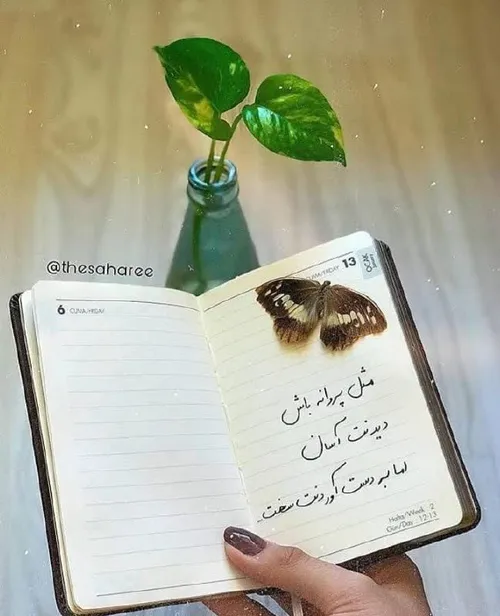 @thesaharee
6 CUMA/FRIDAY
13
OCAK
مثل پروانه باش
دیدنت آسان
اما بدست آوردنت سخت
Hafta/Week 2
Gün/Day 12-13